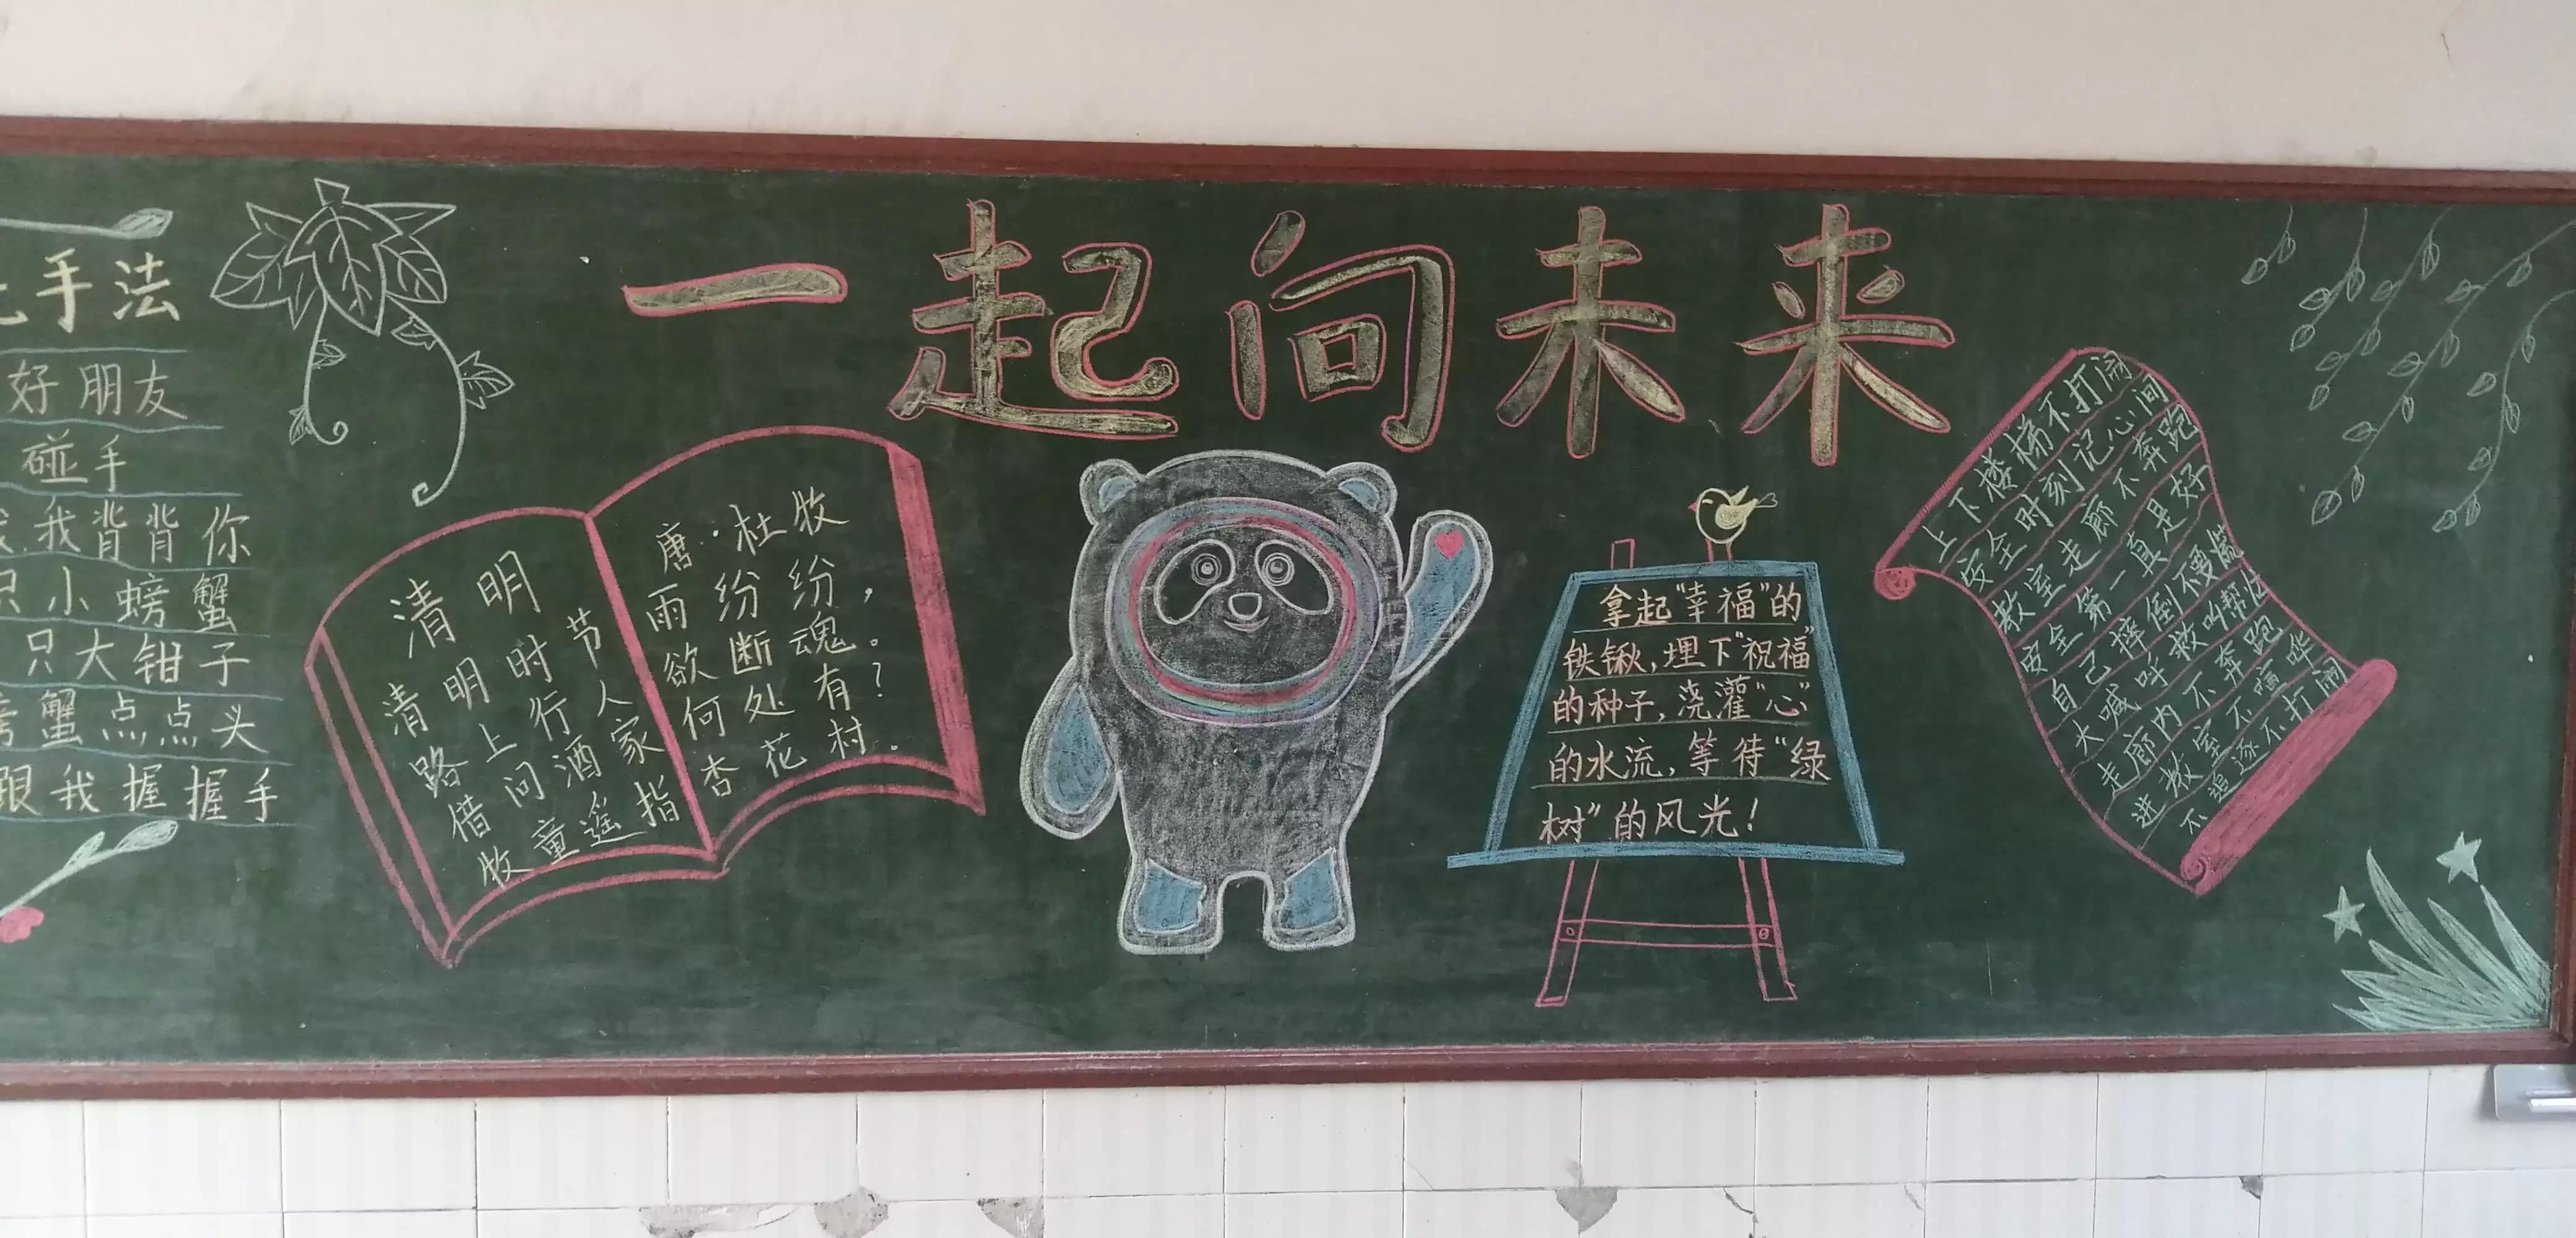 手法
好朋友
碰手
我背背你
只小螃蟹
只大钳子
蟹点点头
跟我握握手
一起向未来
清明
唐·杜牧
清明时节雨纷纷，
路上行人欲断魂。
借问酒家何处有？
牧童遥指杏花村。
拿起“幸福”的
铁锹，埋下“祝福”
的种子，浇灌“心”
的水流，等待“绿
树”的风光！
上下楼梯不打闹
安全时刻记心间
教室走廊不奔跑
安全第一真是好
自己摔倒不要慌
大喊呼救叫帮忙
走廊内不奔跑
进教室不喧哗
不追逐不打闹